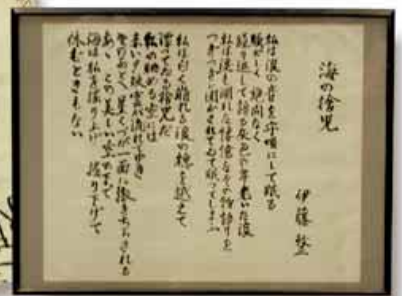 海の捨児
伊藤整
私は浪の音を守唄にして眠る
騒がしく 絶間なく
繰り返して語る灰色の年老いた浪
私は涙も涸れた悽愴なその物語りを
つぎつぎに聞かされてゐて眠ってしまふ
私は白く崩れる浪の穂を越えて
漂ってゐる捨児だ
私の眺める空には
赤い夕映雲が流れてゆき
そのあとへ星くづが一面に撒きちらされる
あゝ この美しい空の下で
海は私を揺り上げ 揺り下げて
休むときもない